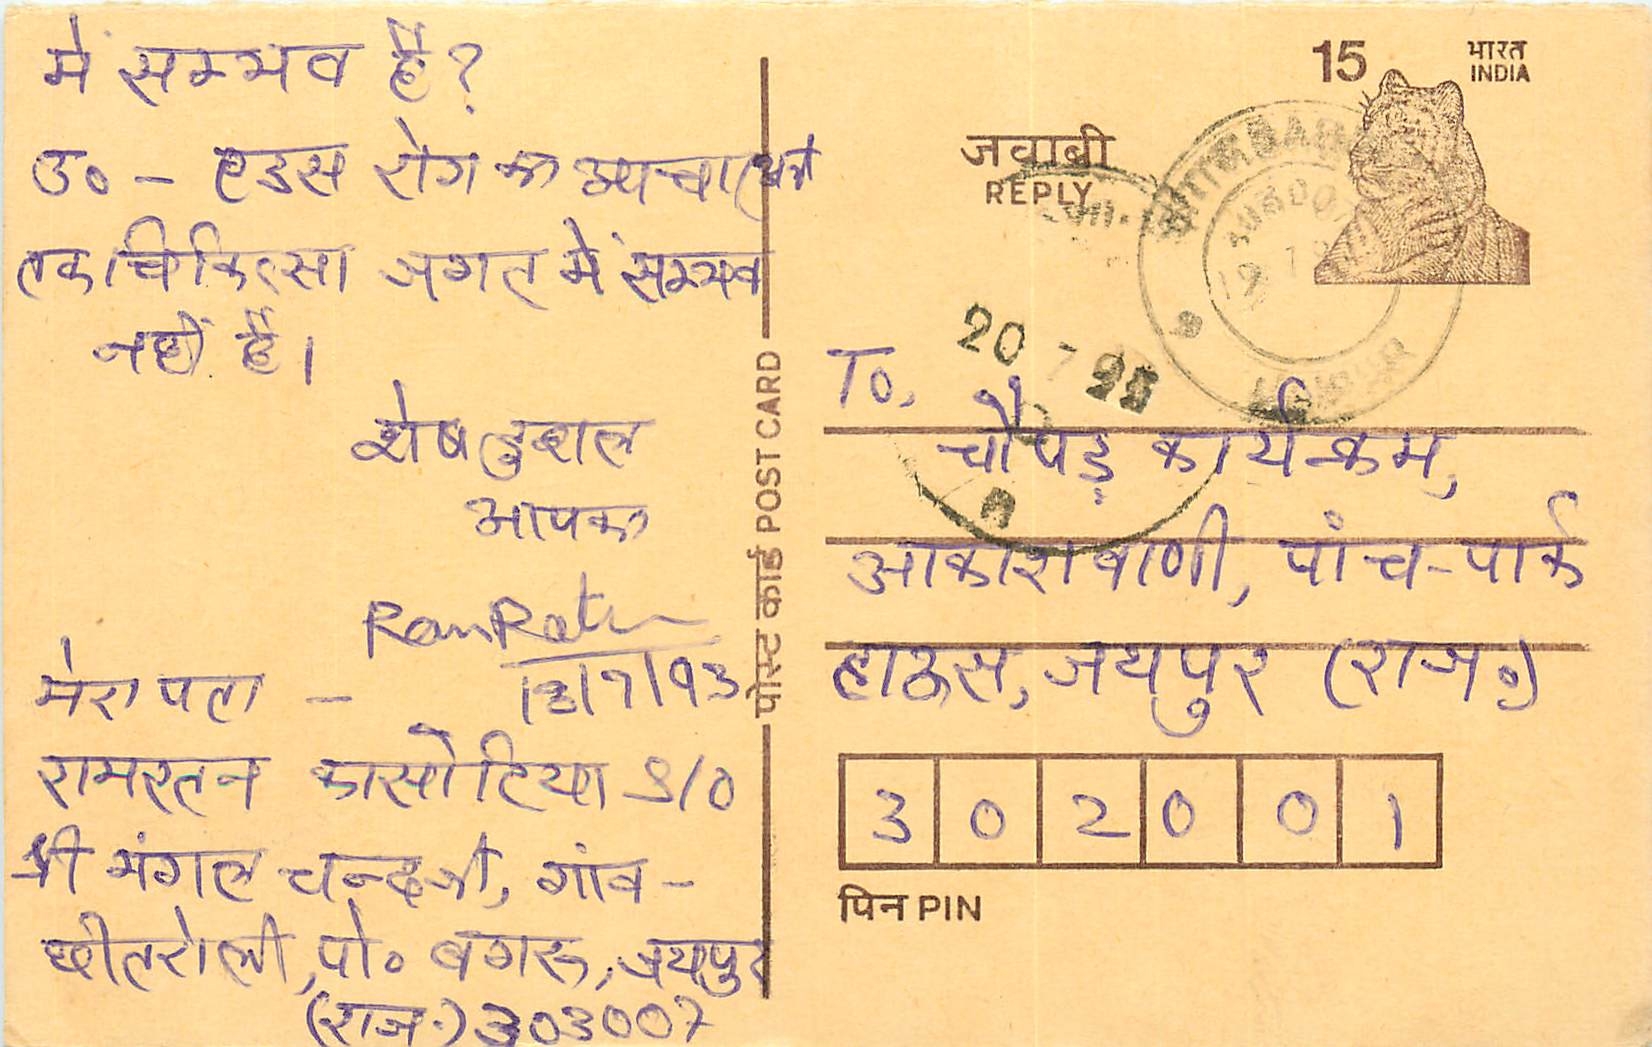 में सम्भव है?
उ० - एडस रोग का उपचार अभी
तक चिकित्सा जगत में सम्भव
नहीं है।
शेष कुशल
आपका
RamRatan
13/7/93
मेरा पता -
रामरतन कासोटिया S/O
श्री मंगल चन्द जी, गांव -
छीतरोली, पो० बगरू, जयपुर
(राज.) 303007
पोस्ट कार्ड POST CARD
15
भारत
INDIA
जवाबी
REPLY
20 7 93
To,
चौपड़ कार्यक्रम,
आकाशवाणी, पांच-पार्क
हाऊस, जयपुर (राज०)
302001
पिन PIN